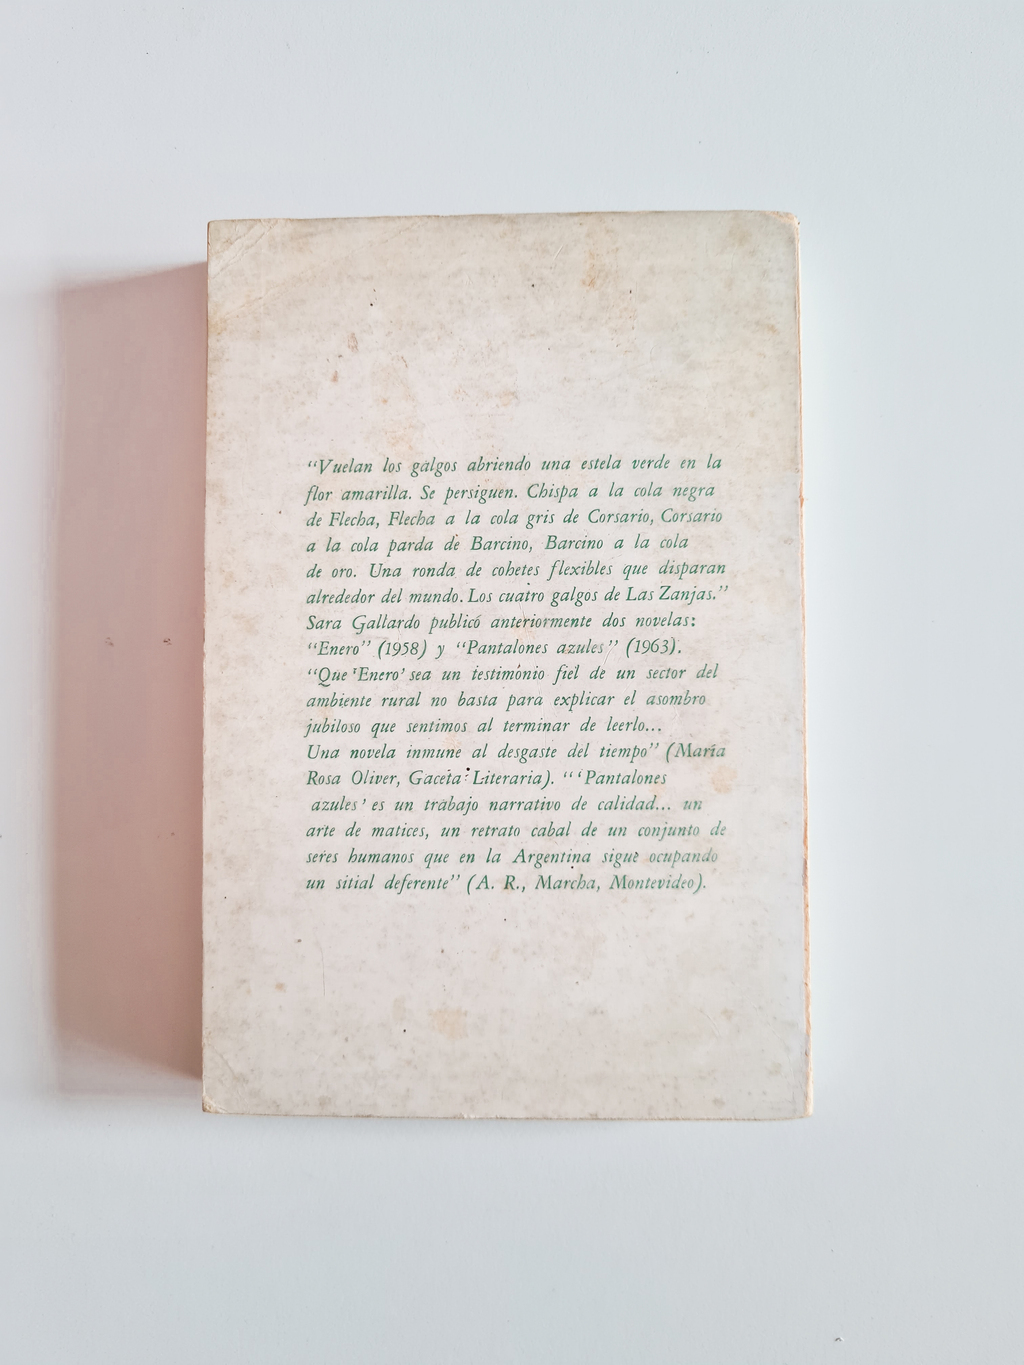 “Vuelan los galgos abriendo una estela verde en la
flor amarilla. Se persiguen. Chispa a la cola negra
de Flecha, Flecha a la cola gris de Corsario, Corsario
a la cola parda de Barcino, Barcino a la cola
de oro. Una ronda de cohetes flexibles que disparan
alrededor del mundo. Los cuatro galgos de Las Zanjas.”
Sara Gallardo publicó anteriormente dos novelas:
“Enero” (1958) y “Pantalones azules” (1963).
“Que ‘Enero’ sea un testimonio fiel de un sector del
ambiente rural no basta para explicar el asombro
jubiloso que sentimos al terminar de leerlo...
Una novela inmune al desgaste del tiempo” (María
Rosa Oliver, Gaceta Literaria). “‘Pantalones
azules’ es un trabajo narrativo de calidad... un
arte de matices, un retrato cabal de un conjunto de
seres humanos que en la Argentina sigue ocupando
un sitial deferente” (A. R., Marcha, Montevideo).